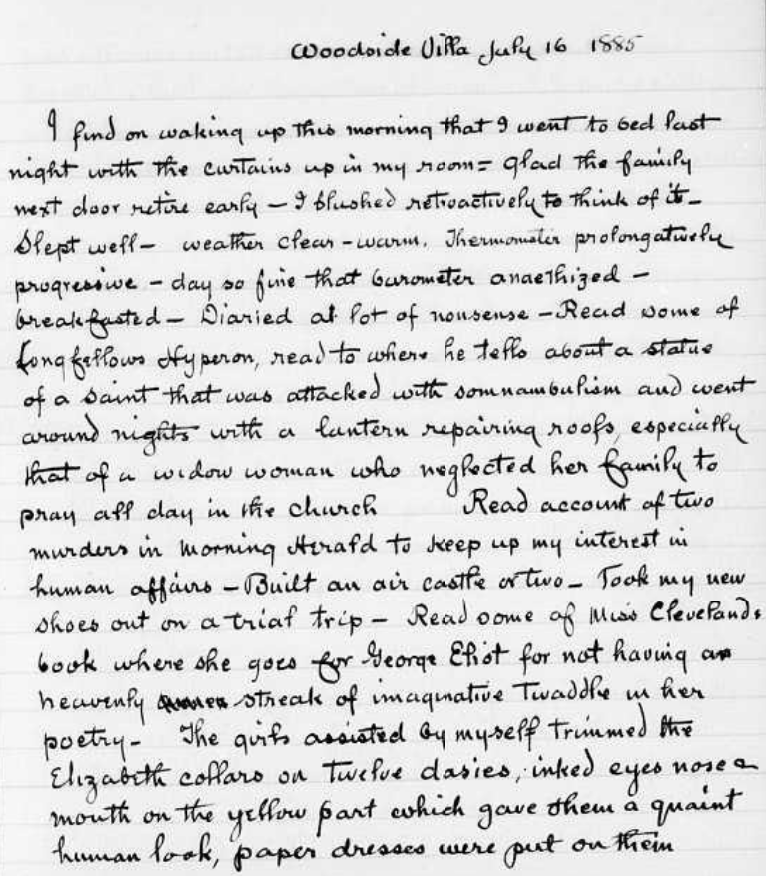 Woodside Villa July 16 1885
I find on waking up this morning that I went to bed last
night with the curtains up in my room= glad the family
next door retire early – I blushed retroactively to think of it –
Slept well – weather clear – warm. Thermometer prolongatively
progressive – day so fine that barometer anaethized –
breakfasted – Diaried at lot of nonsense – Read some of
Longfellows Hyperon, read to where he tells about a statue
of a saint that was attacked with somnambulism and went
around nights with a lantern repairing roofs, especially
that of a widow woman who neglected her family to
pray all day in the church Read account of two
murders in Morning Herald to keep up my interest in
human affairs – Built an air castle or two – Took my new
shoes out on a trial trip – Read some of Miss Clevelands
book where she goes for George Eliot for not having a
heavenly streak of imaginative Twaddle in her
poetry – The girls assisted by myself trimmed the
Elizabeth collars on twelve dasies, inked eyes nose &
mouth on the yellow part which gave them a quaint
human look, paper dresses were put on them